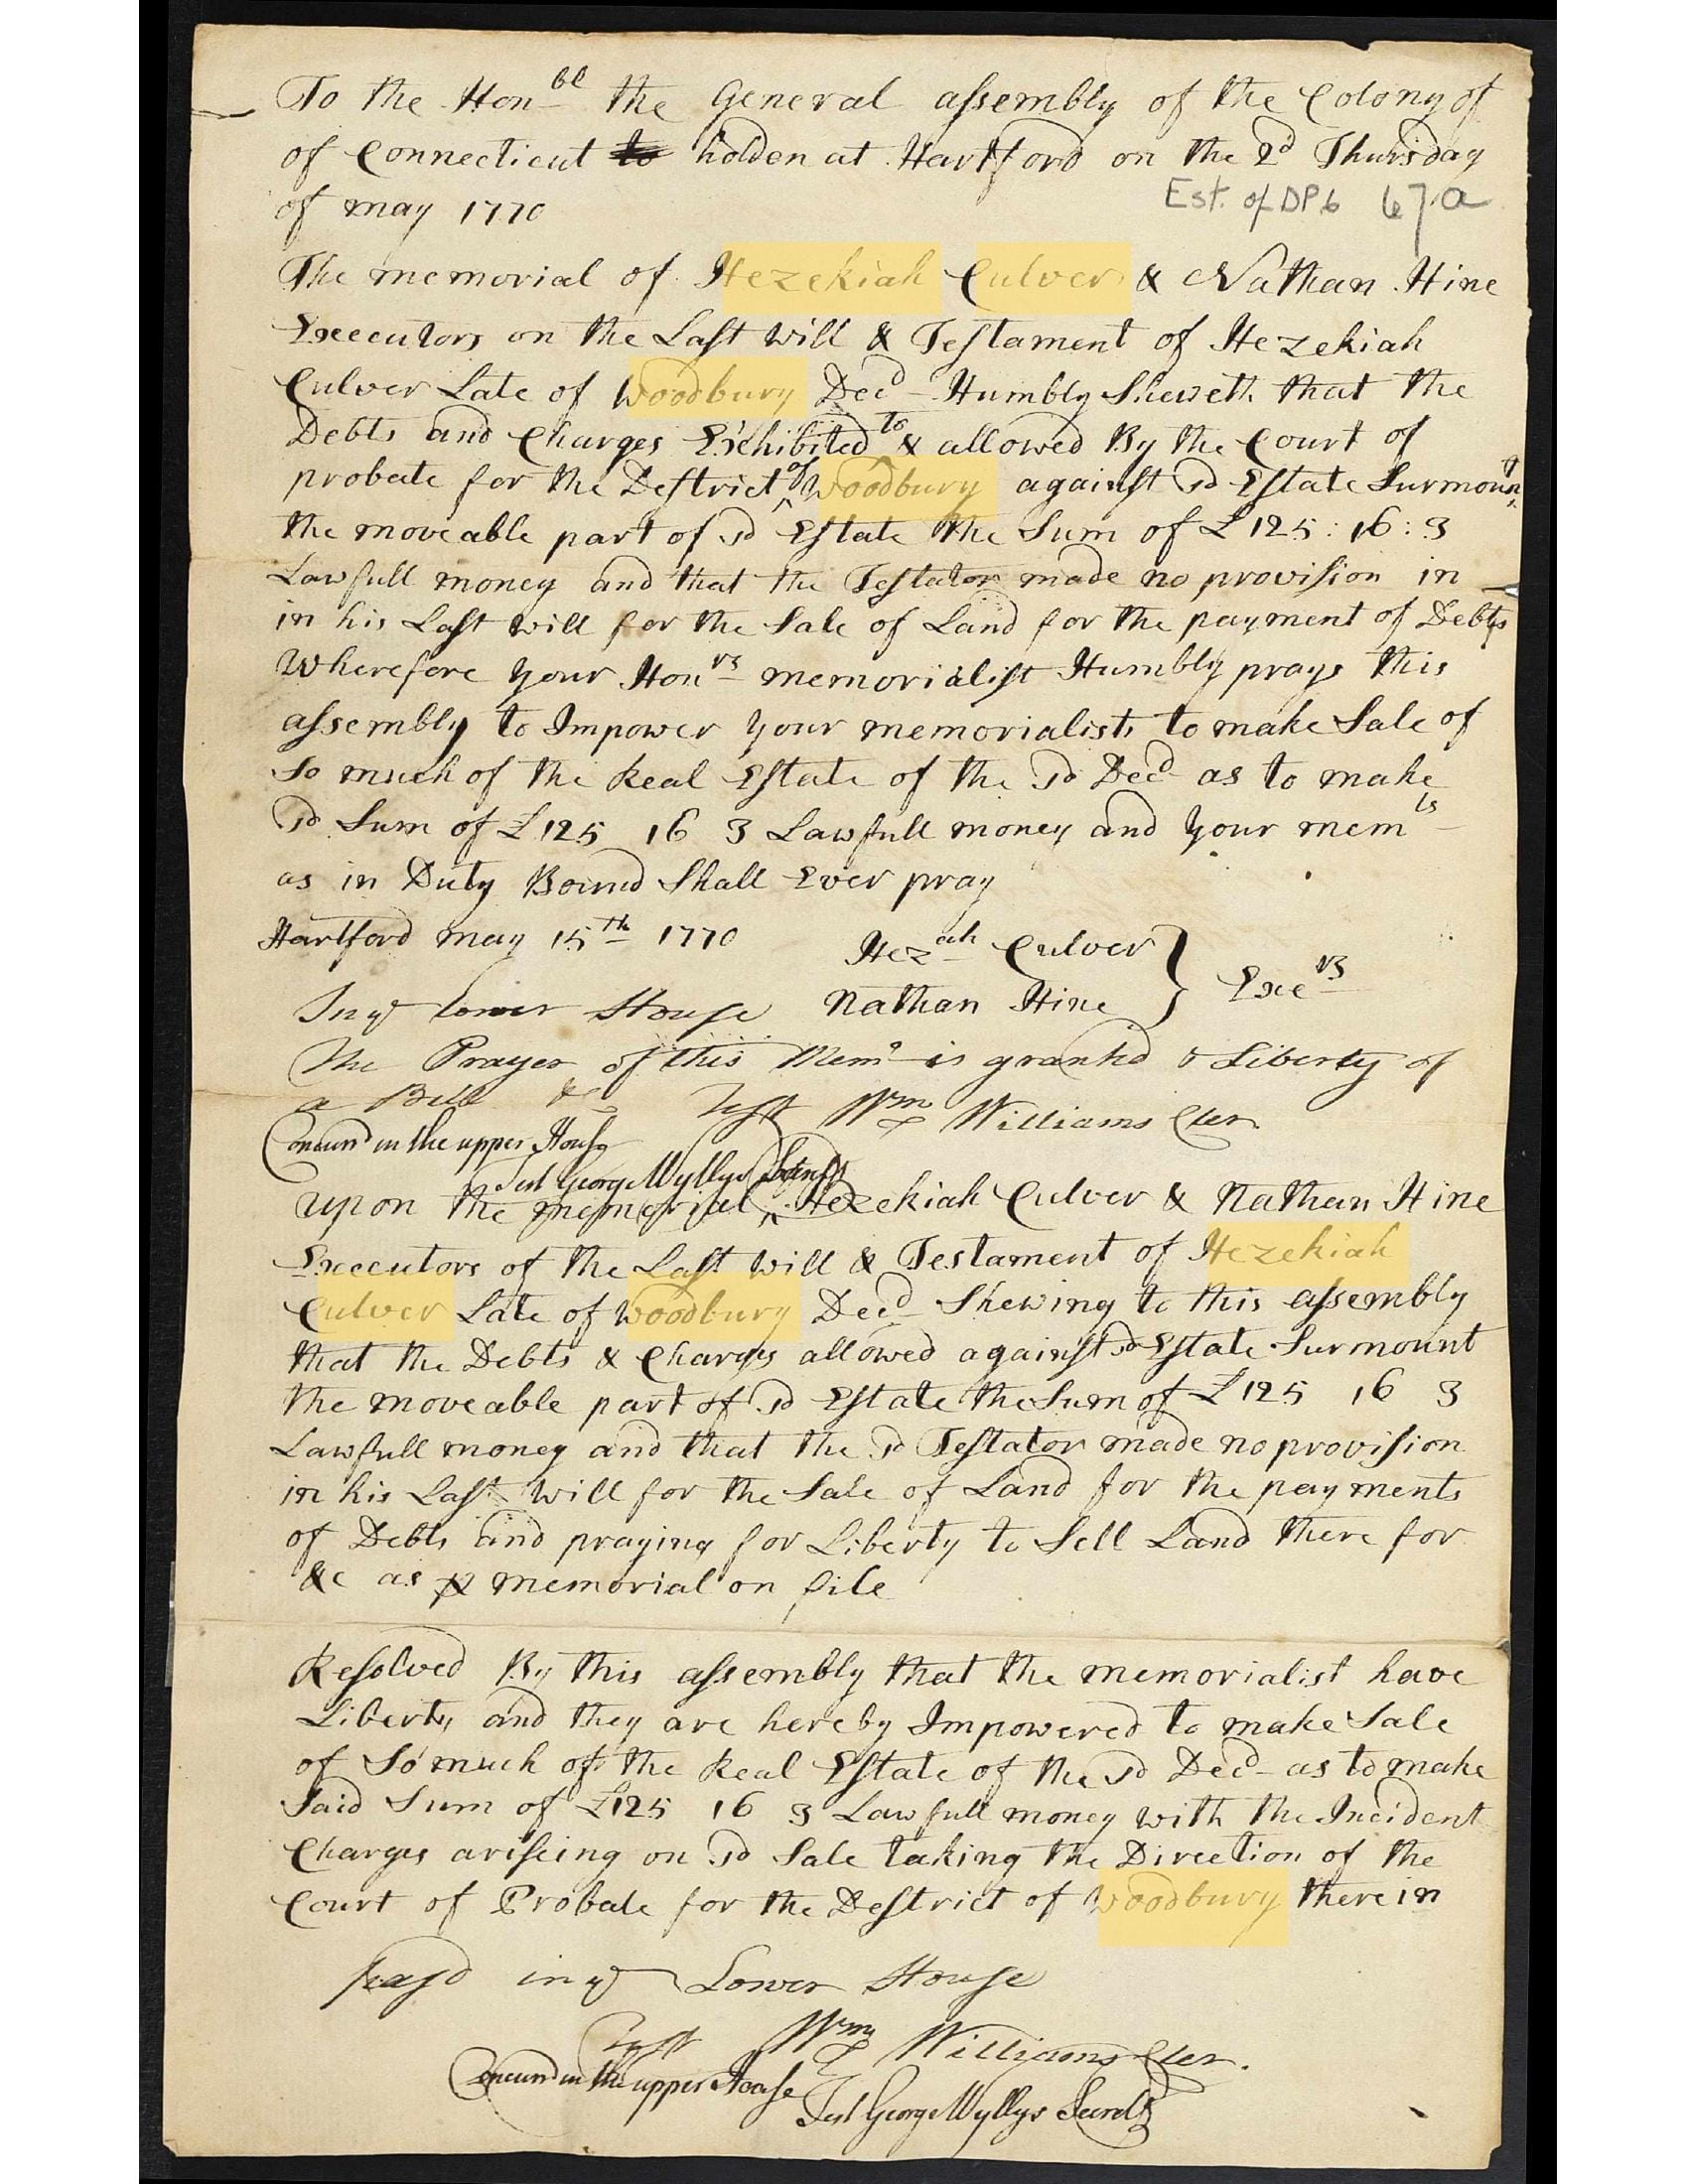 To the Hon^bl the General assembly of the Colony of
of Connecticut to holden at Hartford on the 2d Thursday
of may 1770
Est. of DP6 67a
The memorial of Hezekiah Culver & Nathan Hine
Executors on the Last will & Testament of Hezekiah
Culver Late of Woodbury Decd Humbly Sheweth that the
Debts and Charges Exhibited to & allowed By the Court of
probate for the Destrict of Woodbury against sd Estate Surmount
the moveable part of sd Estate the Sum of £125:16:3
Lawfull money and that the Testator made no provision in
in his Last will for the Sale of Land for the payment of Debts
Wherefore your Hon^rs memorialist Humbly prays this
assembly to Impower your memorialists to make Sale of
So much of the Real Estate of the sd Decd as to make
sd Sum of £125 16 3 Lawfull money and your mem^ts
as in Duty Bound Shall Ever pray
Hartford may 15th 1770
Hez^ah Culver
Nathan Hine } Exe^rs
In ye Lower House
The Prayer of this Mem^o is grantd & Liberty of
a Bill &c Test Wm Williams Cler.
Concurd in the upper House
Test George Wyllys Secrety
upon the memorial Hezekiah Culver & Nathan Hine
Executors of the Last will & Testament of Hezekiah
Culver Late of Woodbury Decd Shewing to this assembly
that the Debts & Charges allowed against sd Estate Surmount
the moveable part of sd Estate the Sum of £125 16 3
Lawfull money and that the sd Testator made no provision
in his Last will for the Sale of Land for the payments
of Debts and praying for Liberty to Sell Land there for
&c as p memorial on file
Resolved By this assembly that the memorialist have
Liberty and they are hereby Impowered to make Sale
of So much of the Real Estate of the sd Decd as to make
Said Sum of £125 16 3 Lawfull money with the Incident
Charges ariseing on sd Sale taking the Direction of the
Court of Probate for the Destrict of Woodbury therein
passd in ye Lower House
Test Wm Williams Cler.
Concurd in the upper House
Test George Wyllys Secrety